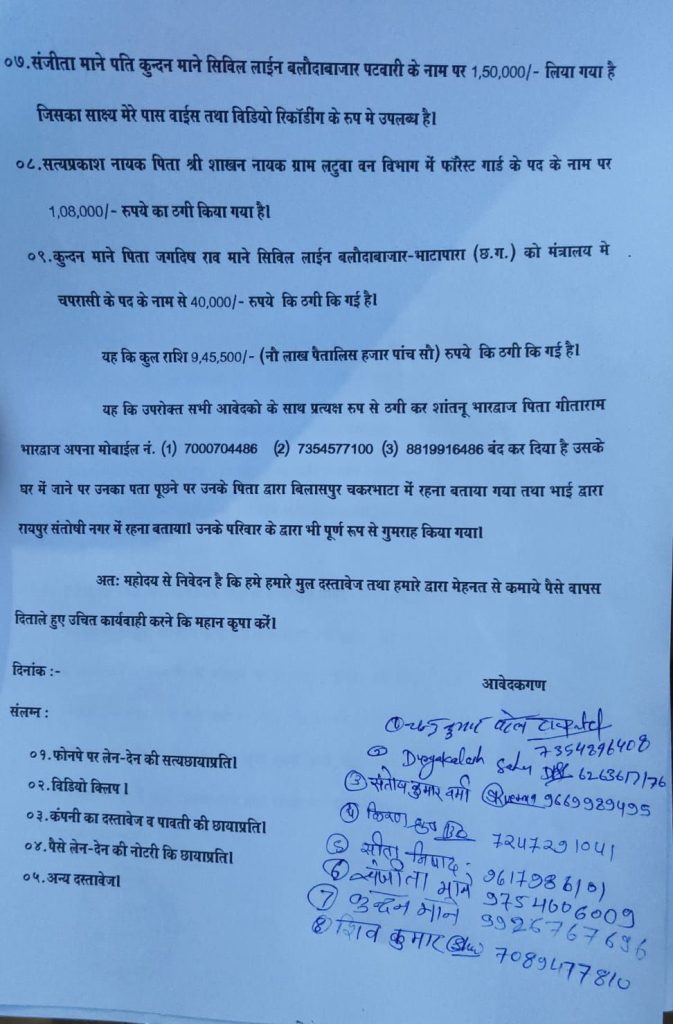 ०७.संजीता माने पति कुन्दन माने सिविल लाईन बलौदाबाजार पटवारी के नाम पर 1,50,000/- लिया गया है
जिसका साक्ष्य मेरे पास वाईस तथा विडियो रिकॉर्डींग के रुप मे उपलब्ध है।
०८.सत्यप्रकाश नायक पिता श्री शाखन नायक ग्राम लटुवा वन विभाग में फॉरेस्ट गार्ड के पद के नाम पर
1,08,000/- रुपये का ठगी किया गया है।
०९.कुन्दन माने पिता जगदिष राव माने सिविल लाईन बलौदाबाजार-भाटापारा (छ.ग.) को मंत्रालय मे
चपरासी के पद के नाम से 40,000/- रुपये कि ठगी कि गई है।
यह कि कुल राशि 9,45,500/- (नौ लाख पैतालिस हजार पांच सौ) रुपये कि ठगी कि गई है।
यह कि उपरोक्त सभी आवेदको के साथ प्रत्यक्ष रुप से ठगी कर शांतनू भारद्वाज पिता गीताराम
भारद्वाज अपना मोबाईल नं. (1) 7000704486 (2) 7354577100 (3) 8819916486 बंद कर दिया है उसके
घर में जाने पर उनका पता पूछने पर उनके पिता द्वारा बिलासपुर चकरभाटा में रहना बताया गया तथा भाई द्वारा
रायपुर संतोषी नगर में रहना बताया। उनके परिवार के द्वारा भी पूर्ण रूप से गुमराह किया गया।
अतः महोदय से निवेदन है कि हमे हमारे मुल दस्तावेज तथा हमारे द्वारा मेहनत से कमाये पैसे वापस
दिताले हुए उचित कार्यवाही करने कि महान कृपा करें।
दिनांक :-
आवेदकगण
संलग्न :
०१.फोनपे पर लेन-देन की सत्यछायाप्रति।
०२.विडियो क्लिप।
०३.कंपनी का दस्तावेज व पावती की छायाप्रति।
०४.पैसे लेन-देन की नोटरी कि छायाप्रति।
०५.अन्य दस्तावेज।
① कुमार पटेल
7354896408
② Sahu
③ संतोष कुमार वर्मा 9669989495
④ किरण 7247291041
⑤ सीता निषाद
⑥ संजीता माने 9617986101
⑦ कुन्दन माने 9754606009
9926767696
⑧ शिव कुमार 7089477810